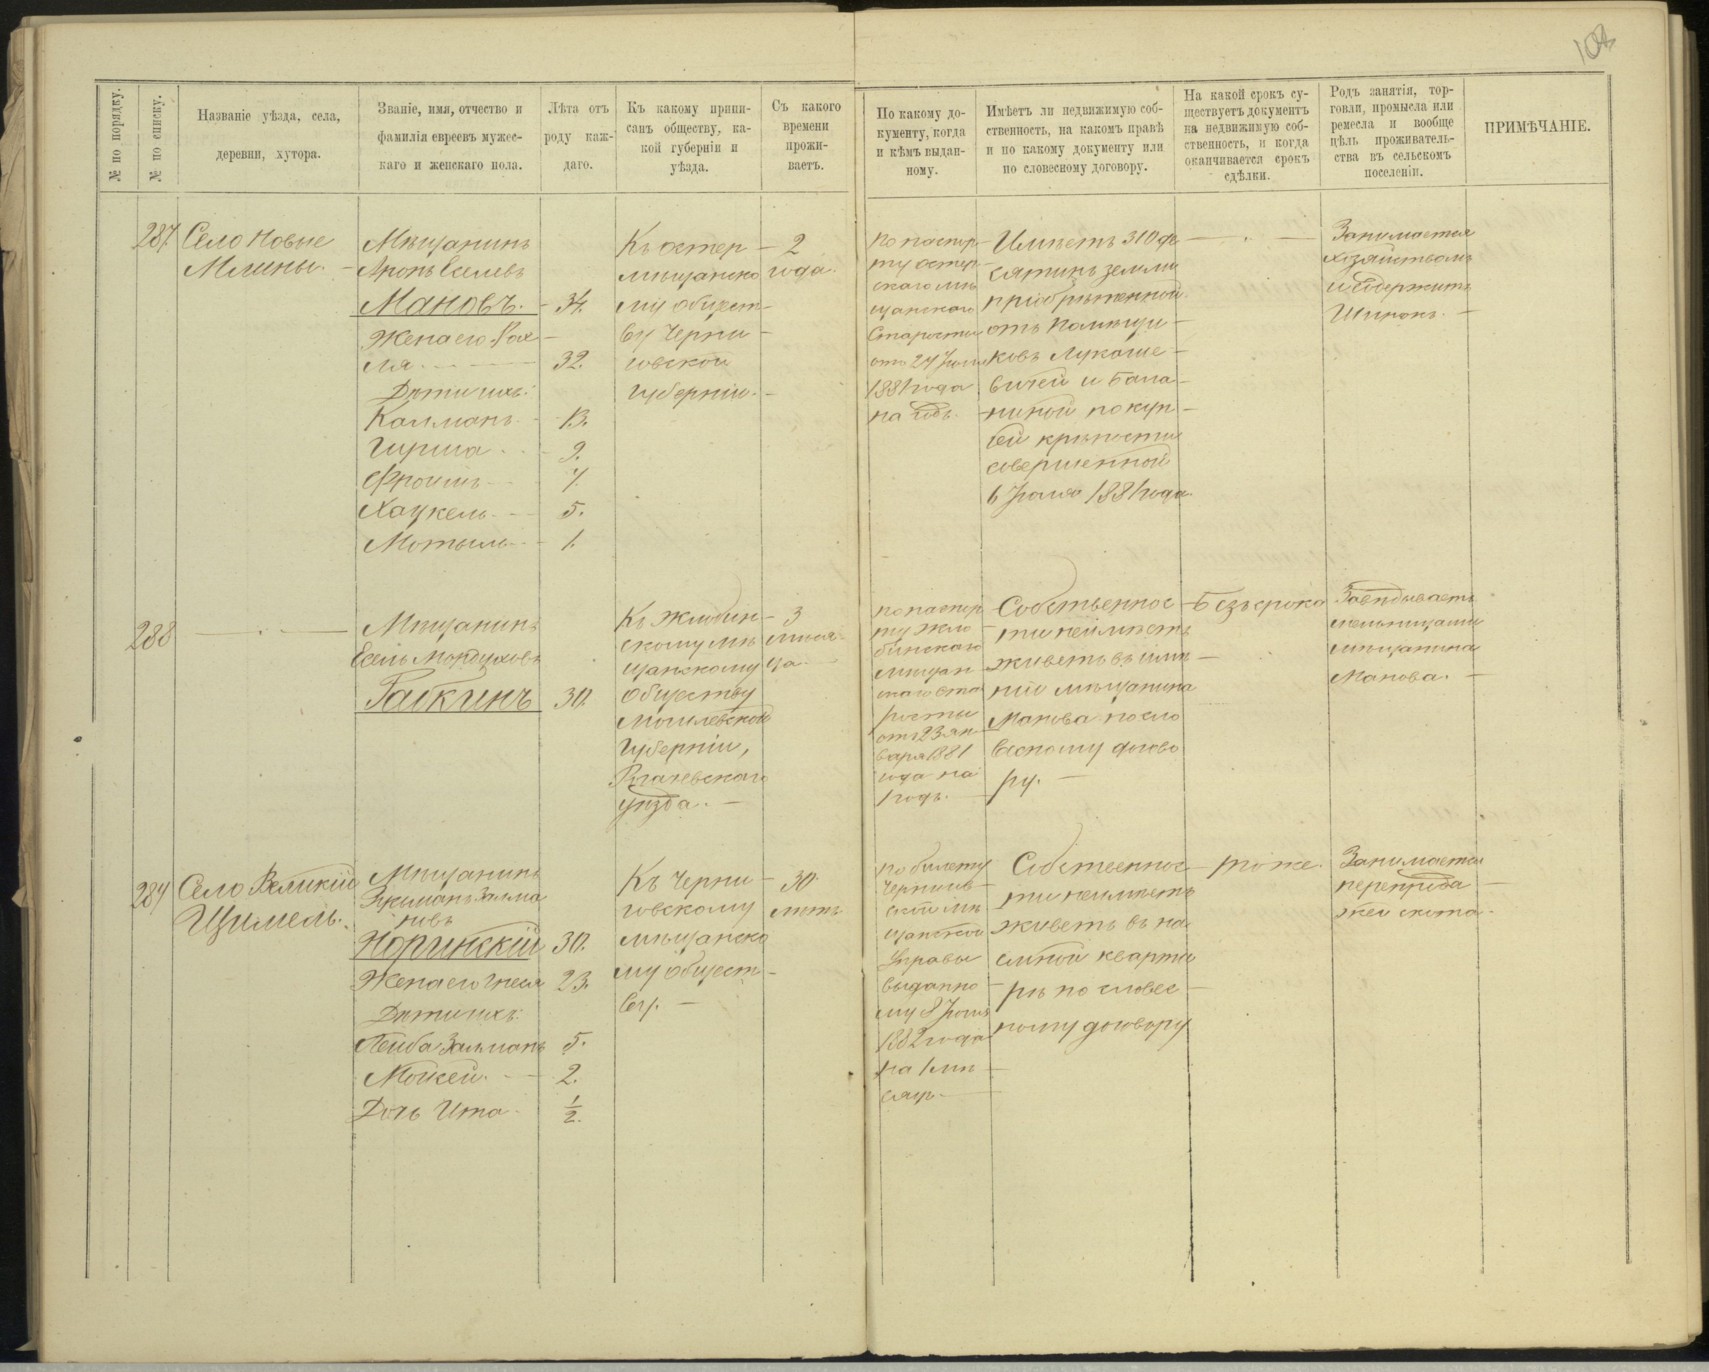 102
№ по порядку.
№ по списку.
Названіе уѣзда, села,
деревни, хутора.
Званіе, имя, отчество и
фамилія евреевъ мужес-
каго и женскаго пола.
Лѣта отъ
роду каж-
даго.
Къ какому припи-
санъ обществу, ка-
кой губерніи и
уѣзда.
Съ какого
времени
прожи-
ваетъ.
По какому до-
кументу, когда
и кѣмъ выдан-
ному.
Имѣетъ ли недвижимую соб-
ственность, на какомъ правѣ
и по какому документу или
по словесному договору.
На какой срокъ су-
ществуетъ документъ
на недвижимую соб-
ственность, и когда
оканчивается срокъ
сдѣлки.
Родъ занятія, тор-
говли, промысла или
ремесла и вообще
цѣль проживатель-
ства въ сельскомъ
поселеніи.
ПРИМѢЧАНІЕ.
287
Село Новые
Млины.
Мѣщанинъ
Аронъ Еселевъ
Мановъ. 34.
Жена его Рах
ля 32.
Дѣти ихъ:
Калманъ 13.
Гирша 9.
Фроимъ 7.
Хацкель 5.
Мотыль 1.
Къ остер
мѣщанско
му общест
ву Черни
говской
губерніи.
2
года.
по паспор
ту остер
скаго мѣ
щанскаго
Старосты
отъ 27 Іюля
1881 года
на годъ.
Имѣетъ 310 де
сятинъ земли
пріобрѣтенной
отъ помѣщи
ковъ Лукаше
вичей и Бала
ниной по куп
чей крѣпости
совершенной
6 Іюля 1881 года
Занимается
хозяйствомъ
и содержитъ
Шинокъ.
288
Мѣщанинъ
Есель Мордуховъ
Гайкинъ 30.
Къ Жлобин
скому мѣ
щанскому
обществу
Могилевской
Губерніи,
Рогачевскаго
уѣзда.
3
мѣся
ца.
по паспор
ту Жло
бинскаго
мѣщан
скаго ста
росты
отъ 23 ян
варя 1881
года на
1 годъ.
Собственнос
ти неимѣетъ
живетъ въ имѣ
ніи мѣщанина
Манова по сло
весному догово
ру.
Безъ срока
Завѣдываетъ
мельницами
мѣщанина
Манова.
289
Село Великій
Щимель.
Мѣщанинъ
Залма
новъ
Норинскій 30.
Жена его Гнеся 23.
Дѣти ихъ:
Лейба Залманъ 5.
Мойсей. 2.
Дочь Ита 1/2.
Къ Черни
говскому
мѣщанско
му общест
ву.
30
лѣтъ
по билету
Чернигов
ской мѣ
щанской
Управы
выданно
му 8 Іюля
1882 года
на 1 мѣ
сяцъ.
Собственнос
ти неимѣетъ
живетъ въ на
емной кварти
рѣ по словес
ному договору
тоже.
Занимается
перепрода
жей скота.